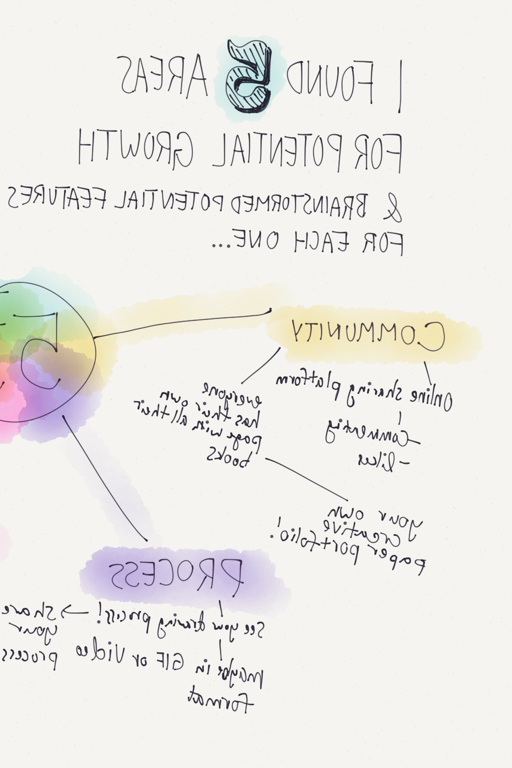 I FOUND 5 AREAS
FOR POTENTIAL GROWTH
& BRAINSTORMED POTENTIAL FEATURES
FOR EACH ONE...
5
COMMUNITY
Online sharing platform
- commenting
- likes
everyone
has their own
page with all their
books
your own
creative
paper portfolio!
PROCESS
See your drawing process! → share
your
process
maybe in GIF or Video
format